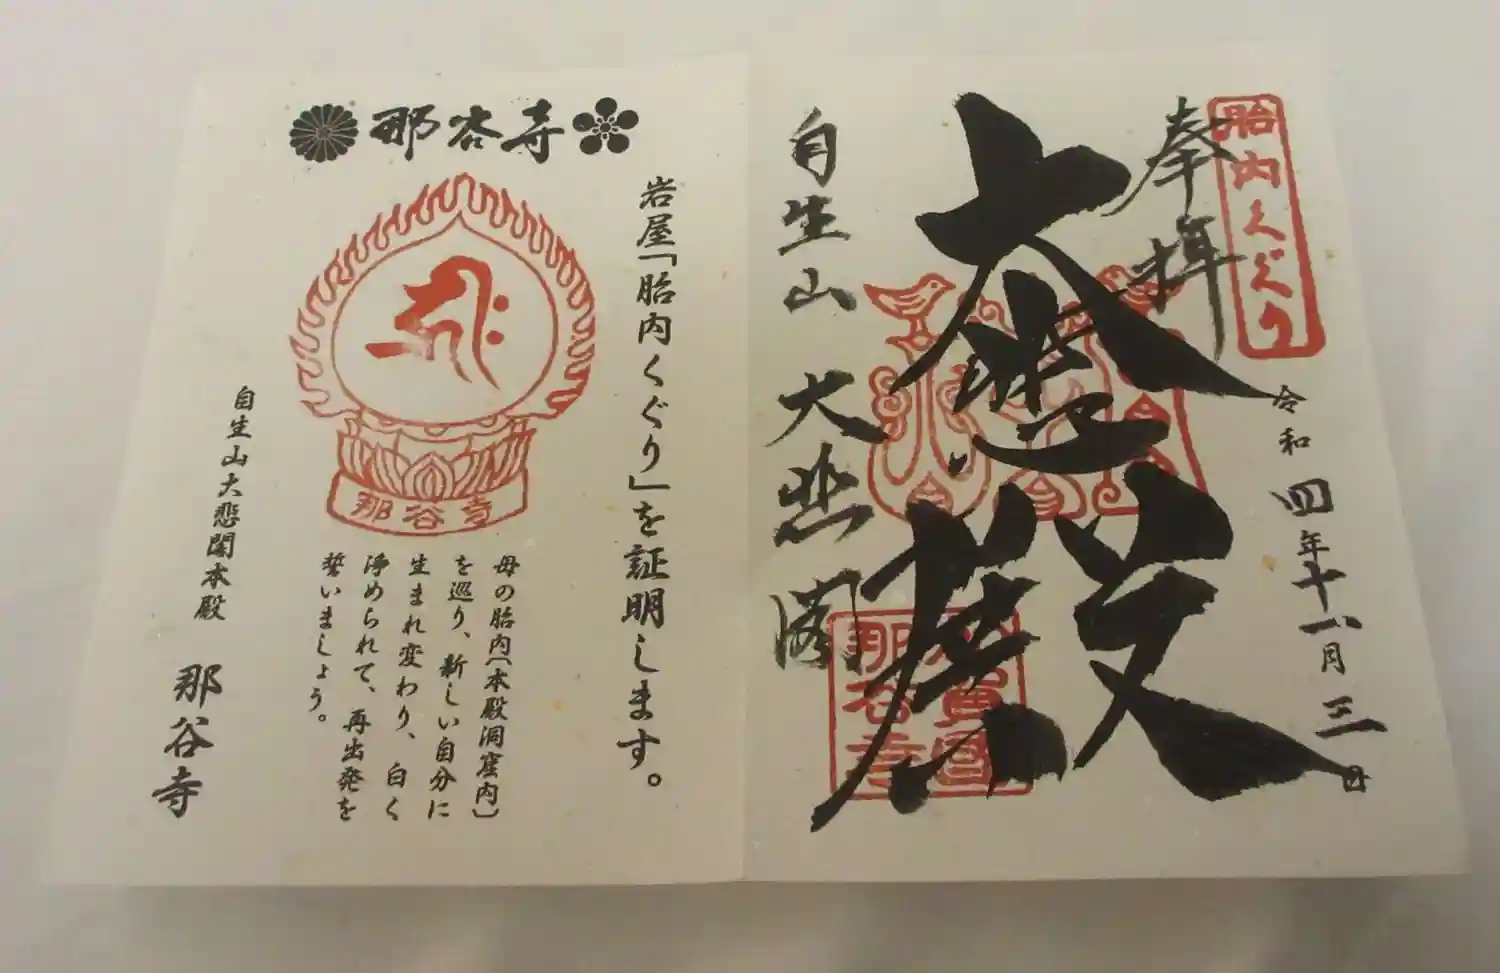 胎内くぐり
奉拝
令和四年十一月三日
大悲殿
加賀國
那谷寺
自生山 大悲閣
那谷寺
岩屋「胎内くぐり」を証明します。
那谷寺
母の胎内〔本殿洞窟内〕
を巡り、新しい自分に
生まれ変わり、白く
浄められて、再出発を
誓いましょう。
自生山大悲閣本殿 那谷寺